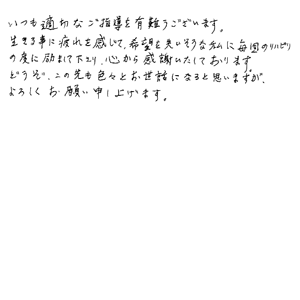 いつも適切なご指導を有難うございます。
生きる事に疲れを感じて、希望を失いそうな私に毎回のリハビリ
の度に励まして下さり、心から感謝いたしております。
どうぞ、この先も色々とお世話になると思いますが、
よろしくお願い申し上げます。